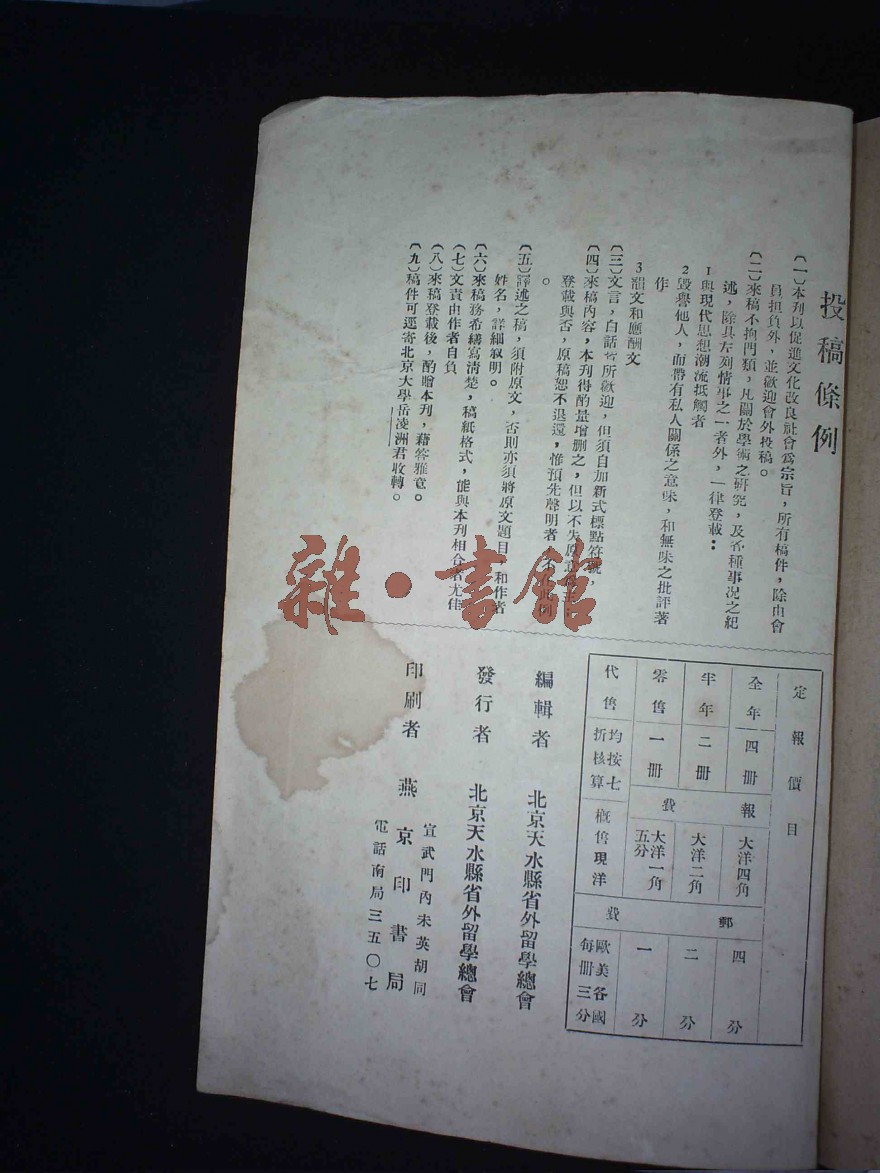 投稿條例
(一)本刊以促進文化改良社會爲宗旨，所有稿件，除由會
員担負外，並歡迎會外投稿。
(二)來稿不拘門類，凡關於學術之研究，及各種事况之紀
述，除具左列情事之一者外，一律登載：
1與現代思想潮流抵觸者
2毀譽他人，而帶有私人關係之意味，和無味之批評著
作
3詶文和應酬文
(三)文言，白話皆所歡迎，但須自加新式標點符號，
(四)來稿内容，本刊得酌量增删之，但以不失原意
登載與否，原稿恕不退還，惟預先聲明者
。
(五)譯述之稿，須附原文，否則亦須將原文題目，和作者
姓名，詳細敍明。
(六)來稿務希繕寫清楚，稿紙格式，能與本刊相合者尤佳
(七)文責由作者自負
(八)來稿登載後，酌贈本刊，藉答雅意。
(九)稿件可逕寄北京大學岳凌洲君收轉。
雜·書館
定報價目
全年 四册 報 大洋四角 郵 四分
半年 二册 大洋二角 二分
零售 一册 費 大洋一角五分 費 一分
代售 均按七折核算 概售現洋 歐美各國每册三分
編輯者 北京天水縣省外留學總會
發行者 北京天水縣省外留學總會
印刷者 燕京印書局
宣武門內未英胡同
電話南局三五〇七